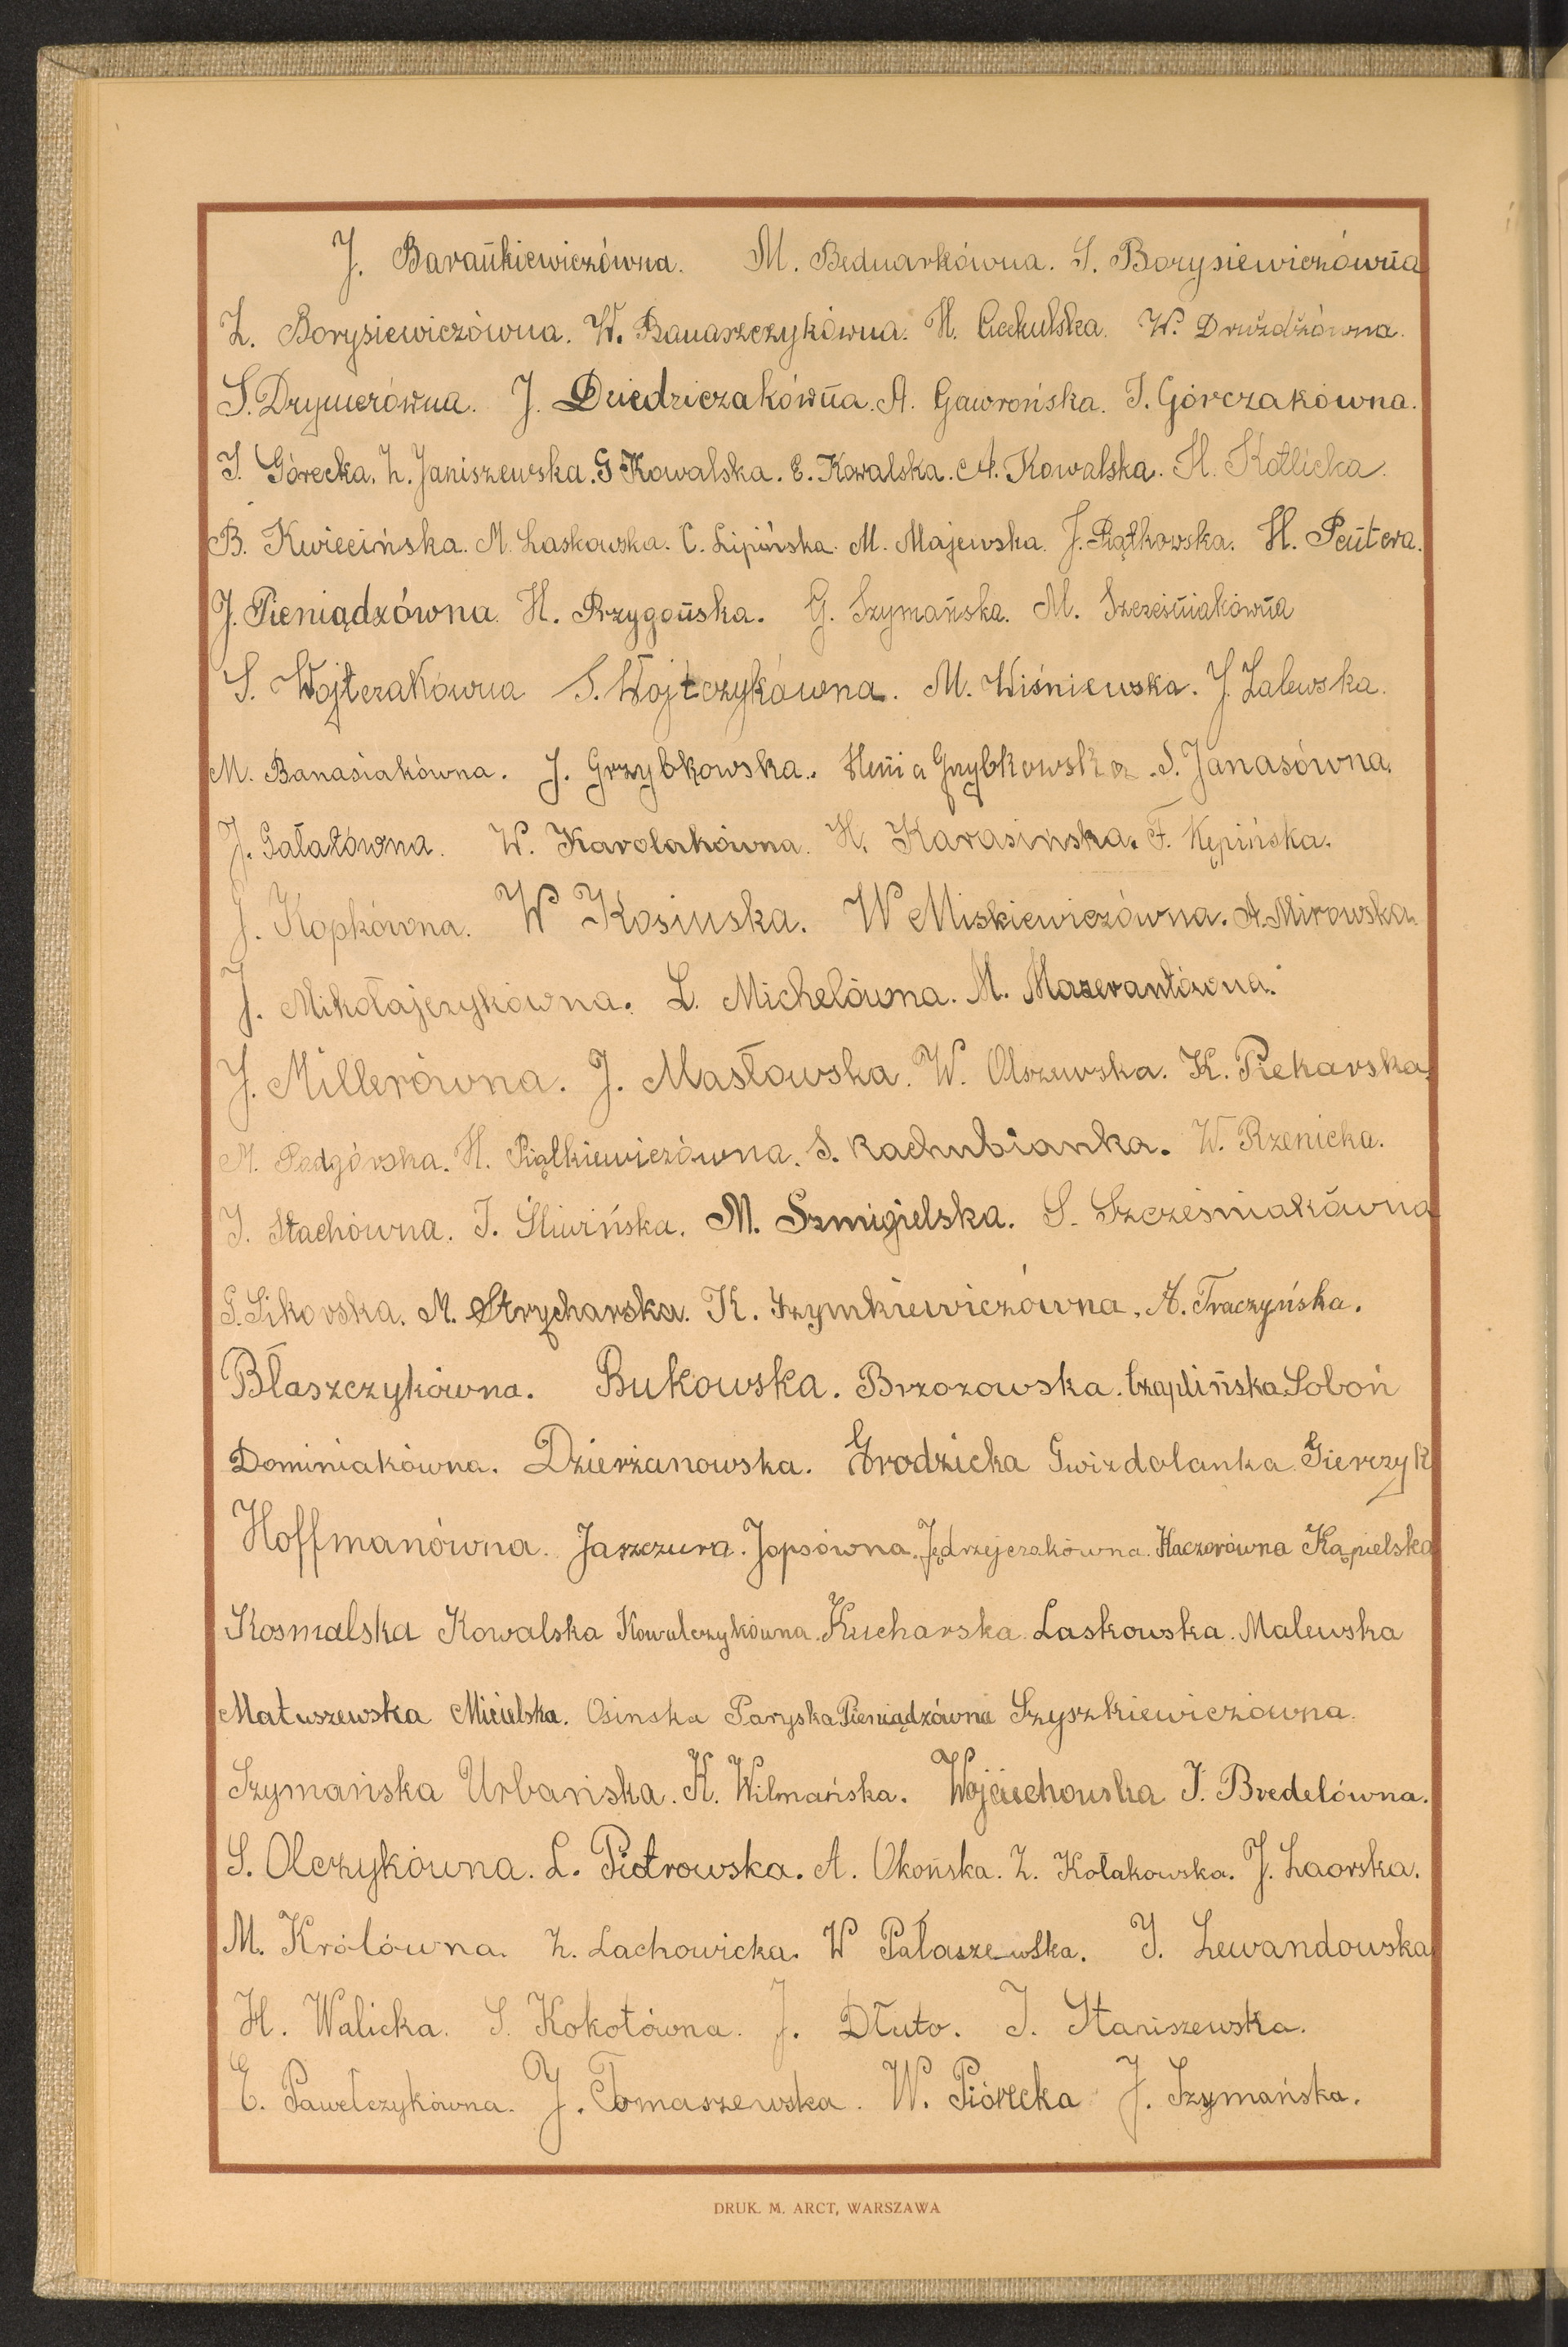 J. Barańkiewiczówna. M. Bednarkówna. S. Borysiewiczówna
Z. Borysiewiczówna. W. Banaszczykówna. H. W. Drużdżówna.
S. Drymerówna. J. Dziedziczakówna. A. Gawrońska. I. Górczakówna.
I. Górecka. Z. Janiszewska. G Kowalska. E. Kowalska. A. Kowalska. H. Kotlicka.
B. Kwiecińska. M. Laskowska. C. Lipińska. M. Majewska. J. Piątkowska. H. Peutera.
J. Pieniądzówna. H. Przygońska. G. Szymańska. M. Szcześniakówna
S. Wojtczakówna S. Wojtczykówna. M. Wiśniewska. J. Zalewska.
M. Banasiakówna. J. Grzybkowska. Henia Grzybkowska. S. Janasówna.
J. Gałatówna. W. Karolakówna. H. Karasińska. F. Kępińska.
J. Kopkówna. W Kosinska. W Miskiewiczówna. A. Mirowska.
J. Mikołajczykówna. L. Michelówna. M. Mazerantówna.
J. Millerówna. J. Masłowska. W. Olszewska. K. Piekarska.
M. Podgórska. H. Piątkiewiczówna. S. Rachubianka. W. Rzenicka.
I. Stachówna. I. Śliwińska. M. Szmigielska. S. Szcześniakówna
G. Sikorska. M. Strycharska. K. Szymkiewiczówna. A. Traczyńska.
Błaszczykówna. Bukowska. Brzozowska. Czaplińska Soboń
Dominiakówna. Dzierżanowska. Grodzicka Gwizdalanka Gierczyk
Hoffmanówna. Jaszczura. Jopsówna. Jędrzejczakówna. Kaczorówna Kąpielska
Kosmalska Kowalska Kowalczykówna. Kucharska Laskowska. Malewska
Matuszewska Micielska. Osinska Paryska Pieniądzówna Szyszkiewiczówna.
Szymańska Urbańska. K. Wilmańska. Wojciechowska I. Bredelówna.
S. Olczykówna. L. Piotrowska. A. Okońska. Z. Kołakowska. J. Laorska.
M. Królówna. Z. Lachowicka. W Pałaszewska. J. Lewandowska
H. Walicka. S. Kokotówna. J. Dłuto. I. Staniszewska.
E. Pawełczykówna. J. Tomaszewska. W. Piórecka J. Szymańska.
DRUK. M. ARCT, WARSZAWA